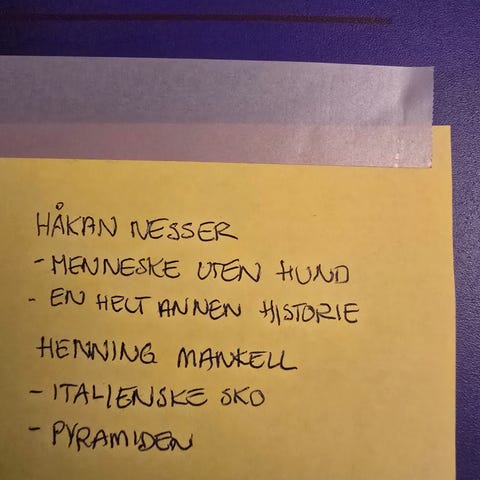 HÅKAN NESSER
- MENNESKE UTEN HUND
- EN HELT ANNEN HISTORIE
HENNING MANKELL
- ITALIENSKE SKO
- PYRAMIDEN